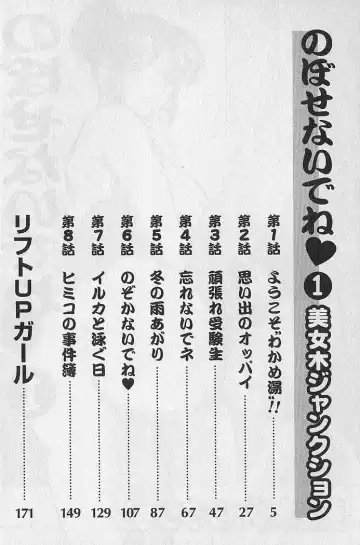 のぼせないでね♥❶美女木ジャンクション
第1話 ようこそ"わかめ湯"!! 5
第2話 思い出のオッパイ 27
第3話 頑張れ受験生 47
第4話 忘れないでネ 67
第5話 冬の雨あがり 87
第6話 のぞかないでね♥ 107
第7話 イルカと泳ぐ日 129
第8話 ヒミコの事件簿 149
リフトUPガール 171